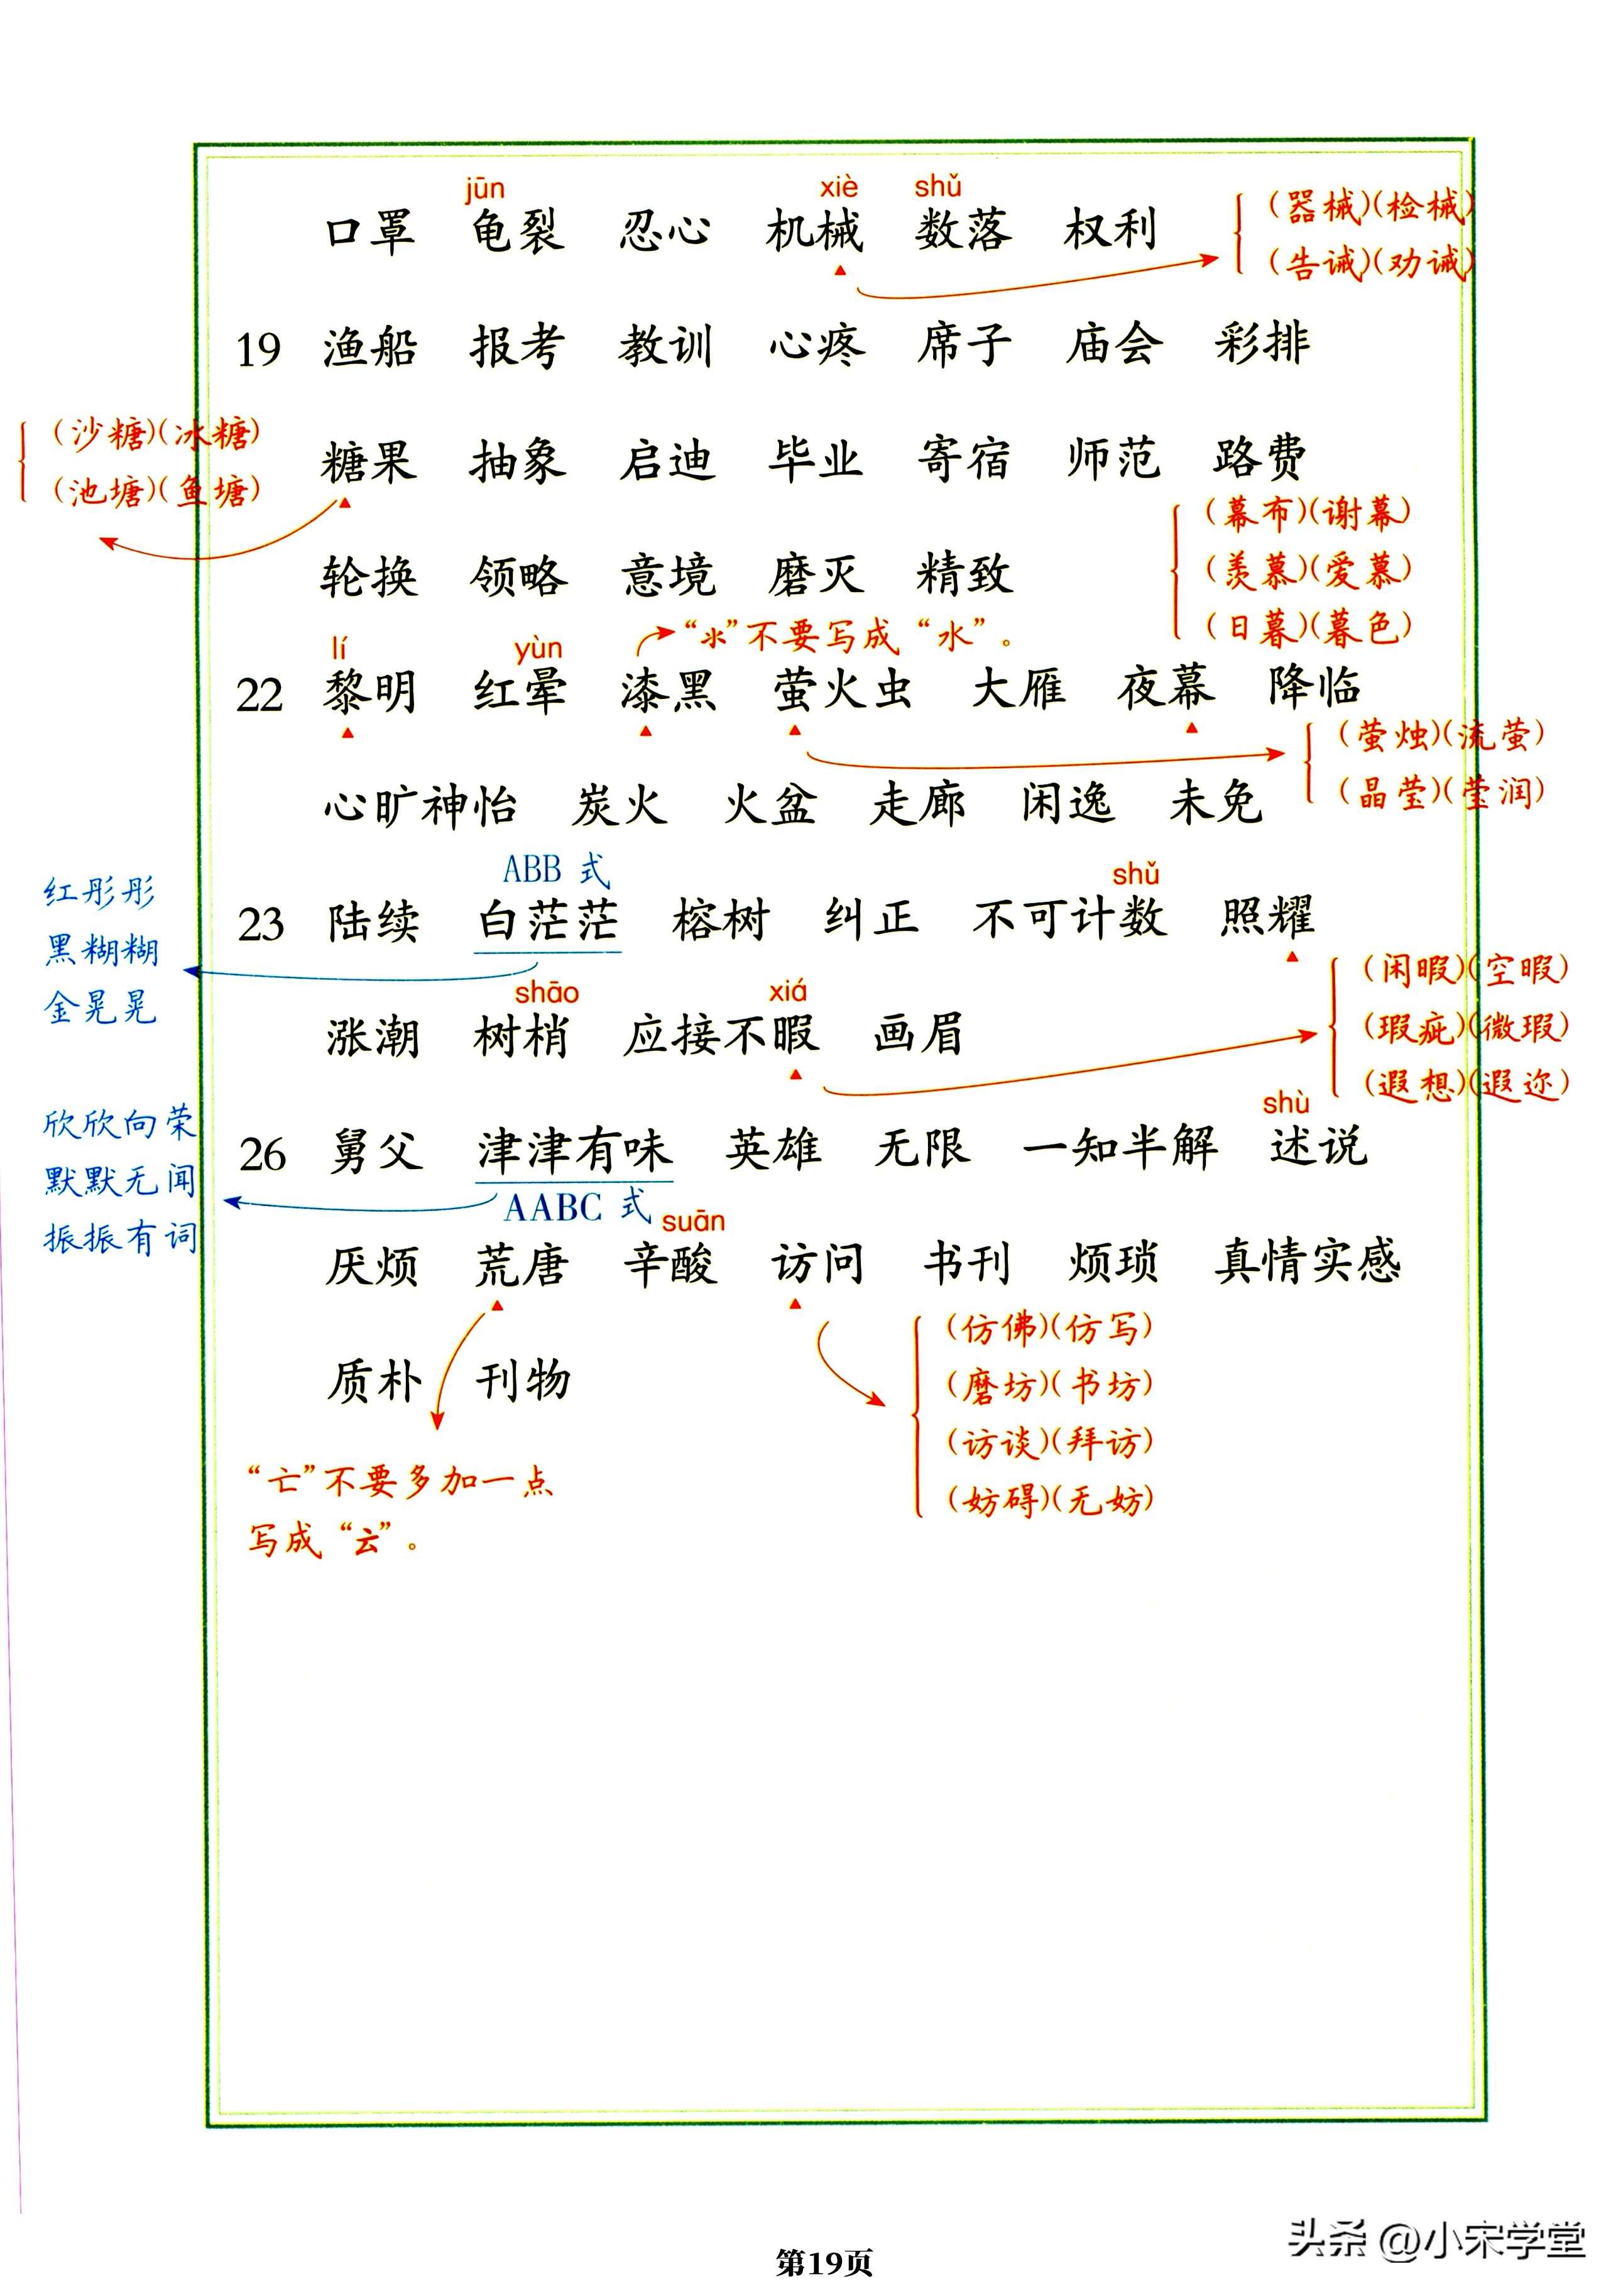 jūn xiè shǔ
口罩 龟裂 忍心 机械 数落 权利
(器械)(检械)
(告诫)(劝诫)
19 渔船 报考 教训 心疼 席子 庙会 彩排
(沙糖)(冰糖)
(池塘)(鱼塘)
糖果 抽象 启迪 毕业 寄宿 师范 路费
轮换 领略 意境 磨灭 精致
(幕布)(谢幕)
(羡慕)(爱慕)
(日暮)(暮色)
“氺”不要写成“水”。
lí yùn
22 黎明 红晕 漆黑 萤火虫 大雁 夜幕 降临
(萤烛)(流萤)
(晶莹)(莹润)
心旷神怡 炭火 火盆 走廊 闲逸 未免
ABB 式 shǔ
23 陆续 白茫茫 榕树 纠正 不可计数 照耀
红彤彤
黑糊糊
金晃晃
shāo xiá
涨潮 树梢 应接不暇 画眉
(闲暇)(空暇)
(瑕疵)(微瑕)
(遐想)(遐迩)
shù
26 舅父 津津有味 英雄 无限 一知半解 述说
欣欣向荣
默默无闻
振振有词
AABC 式 suān
厌烦 荒唐 辛酸 访问 书刊 烦琐 真情实感
质朴 刊物
(仿佛)(仿写)
(磨坊)(书坊)
(访谈)(拜访)
(妨碍)(无妨)
“亡”不要多加一点
写成“云”。
头条 @小宋学堂
第19页